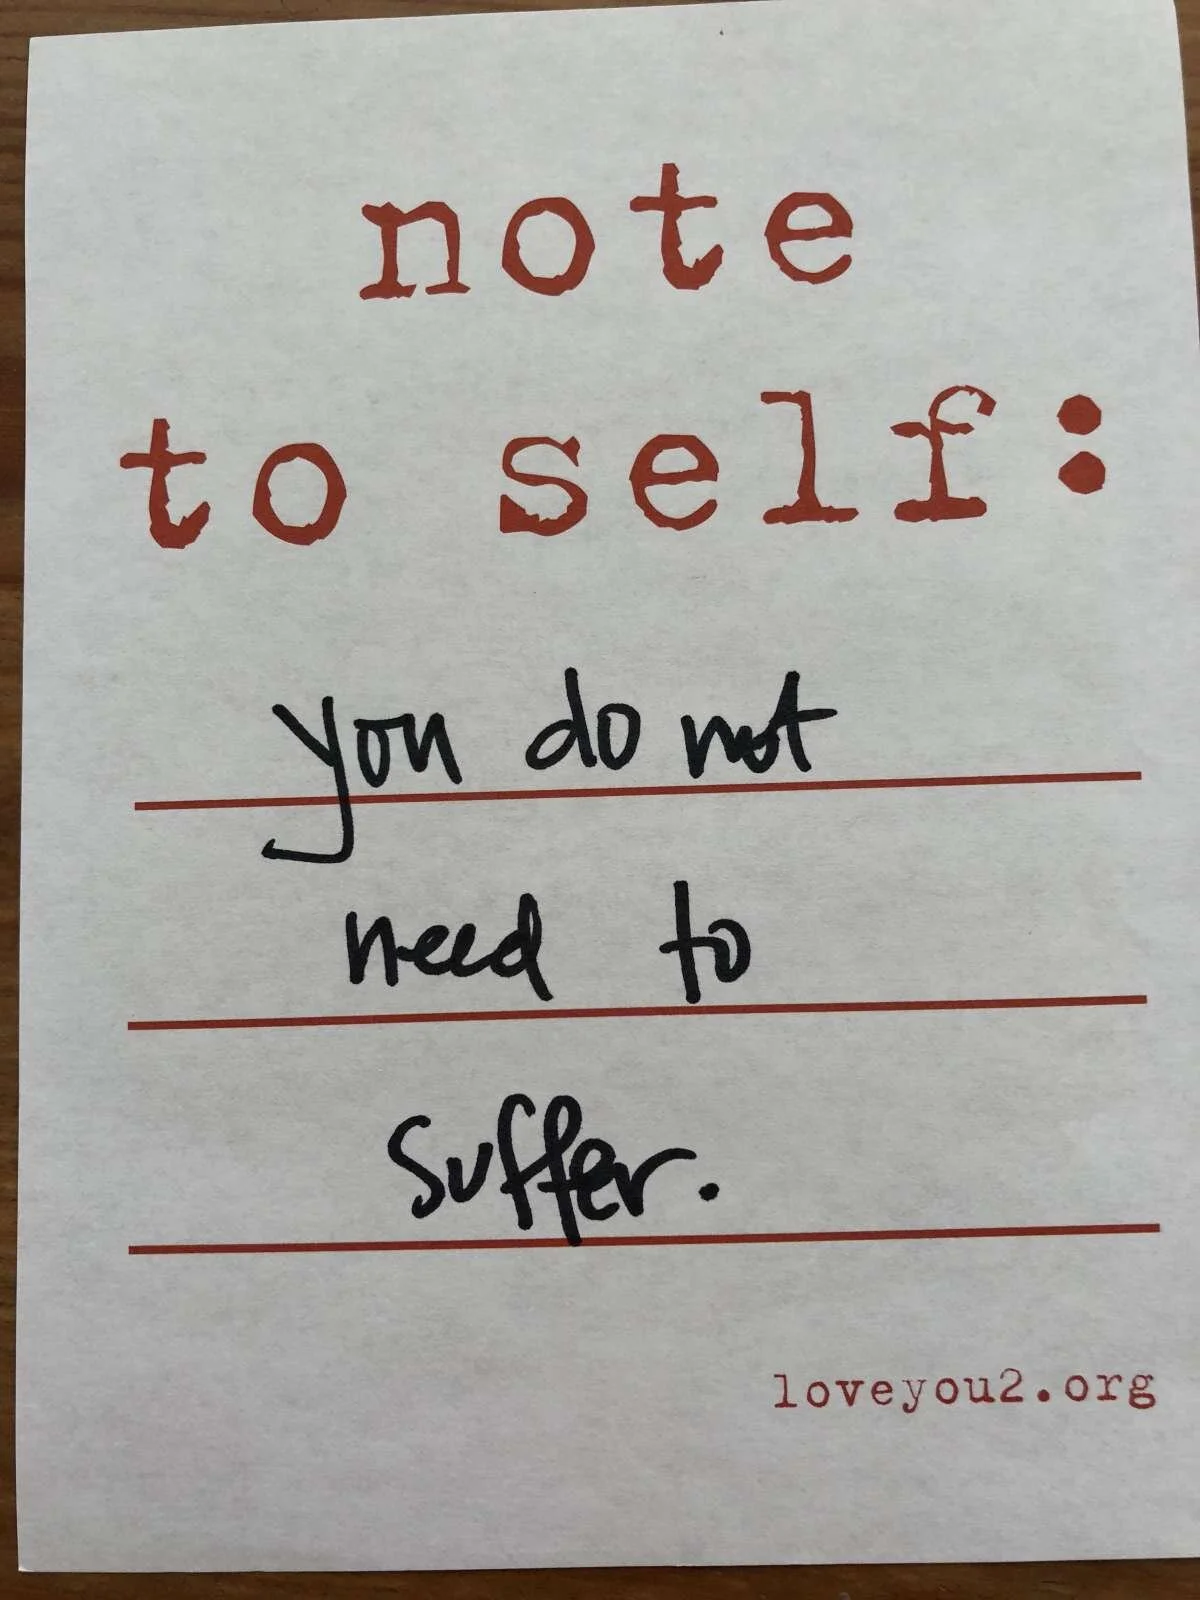 note
to self:
you do not
need to
suffer.
loveyou2.org